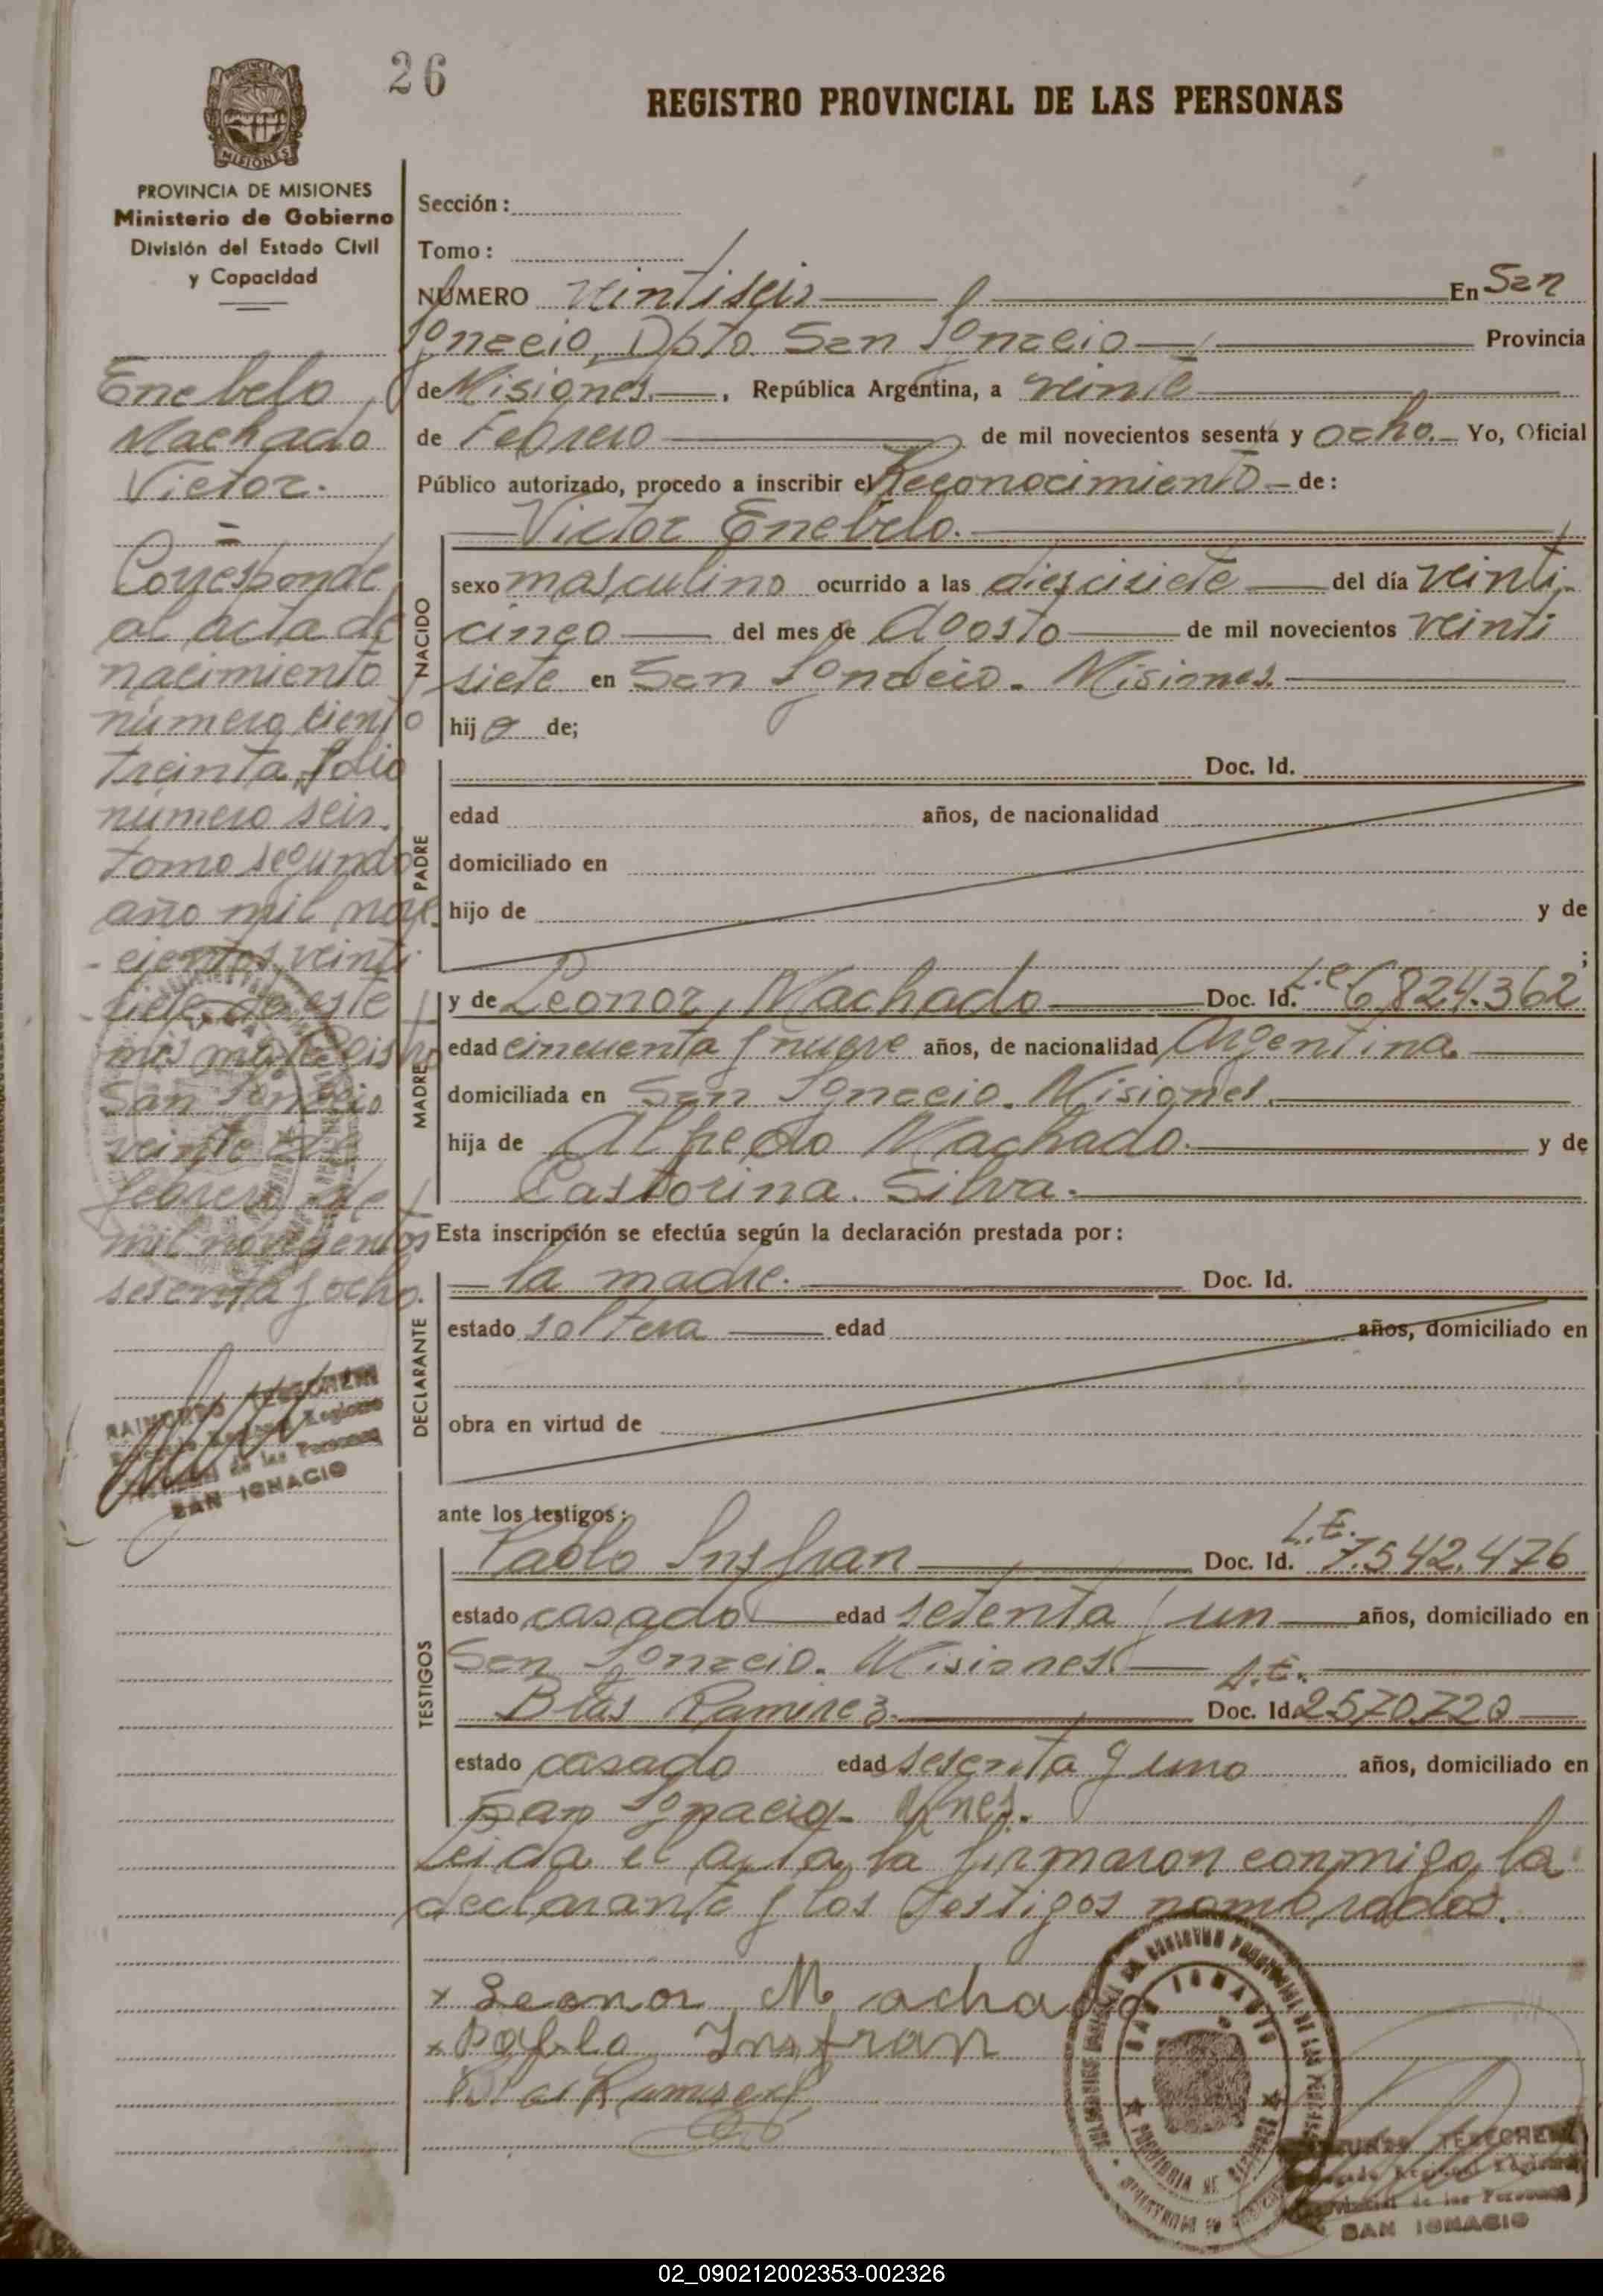 26
REGISTRO PROVINCIAL DE LAS PERSONAS
PROVINCIA DE MISIONES
Ministerio de Gobierno
División del Estado Civil
y Capacidad
Enebelo
Machado
Victor.
Corresponde
al acta de
nacimiento
número ciento
treinta, folio
número seis.
tomo segundo
año mil nove
cientos veinti
siete de este
mismo
San Ignacio
veinte de
febrero de
mil novecientos
sesenta y ocho.
de las Personas
SAN IGNACIO
Sección:
Tomo:
NÚMERO veintiseis En San
Ignacio, Dpto San Ignacio Provincia
de Misiones, República Argentina, a veinte
de Febrero de mil novecientos sesenta y ocho. Yo, Oficial
Público autorizado, procedo a inscribir el Reconocimiento de:
Victor Enebelo.
NACIDO
sexo masculino ocurrido a las diezcisiete del día veinti
cinco del mes de Agosto de mil novecientos veinti
siete en San Ignacio. Misiones.
hijo de;
PADRE
Doc. Id.
edad años, de nacionalidad
domiciliado en
hijo de y de
;
MADRE
y de Leonor, Machado Doc. Id. L.e. 6.824.362
edad cincuenta y nueve años, de nacionalidad Argentina.
domiciliada en San Ignacio. Misiones.
hija de Alfredo Machado. y de
Castorina. Silva.
Esta inscripción se efectúa según la declaración prestada por:
DECLARANTE
la madre. Doc. Id.
estado soltera edad años, domiciliado en
obra en virtud de
ante los testigos:
TESTIGOS
Pablo Insfran Doc. Id. L.E. 7.542.476
estado casado edad setenta y un años, domiciliado en
San Ignacio. Misiones
Blas Ramirez. Doc. Id. L.E. 2570720
estado casado edad sesenta y uno años, domiciliado en
San Ignacio. Mnes.
Leida el acta, la firmaron conmigo, la
declarante y los testigos nombrados.
x Leonor Machado
x Pablo Insfran
Blas Ramirez
SAN IGNACIO
PROVINCIA DE MISIONES
SAN IGNACIO
02_090212002353-002326